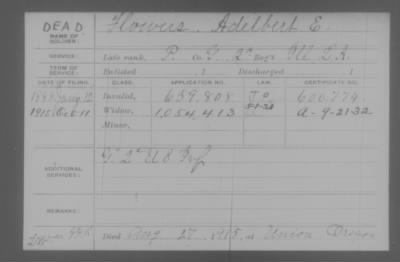 DEAD
NAME OF SOLDIER:
Flowers, Adelbert E.
SERVICE:
Late rank, P. Co. G, 2" Reg't
TERM OF SERVICE:
Enlisted , 1 Discharged , 1
DATE OF FILING. CLASS. APPLICATION NO. LAW. CERTIFICATE NO.
Aug 12 Invalid, 639.808 600.774
1915 Oct 11 Widow, 1.054.413 A-9-21-32
Minor,
ADDITIONAL SERVICES:
G. 2" U S Inf
REMARKS:
Died Aug 27, 1915, at Union Oregon